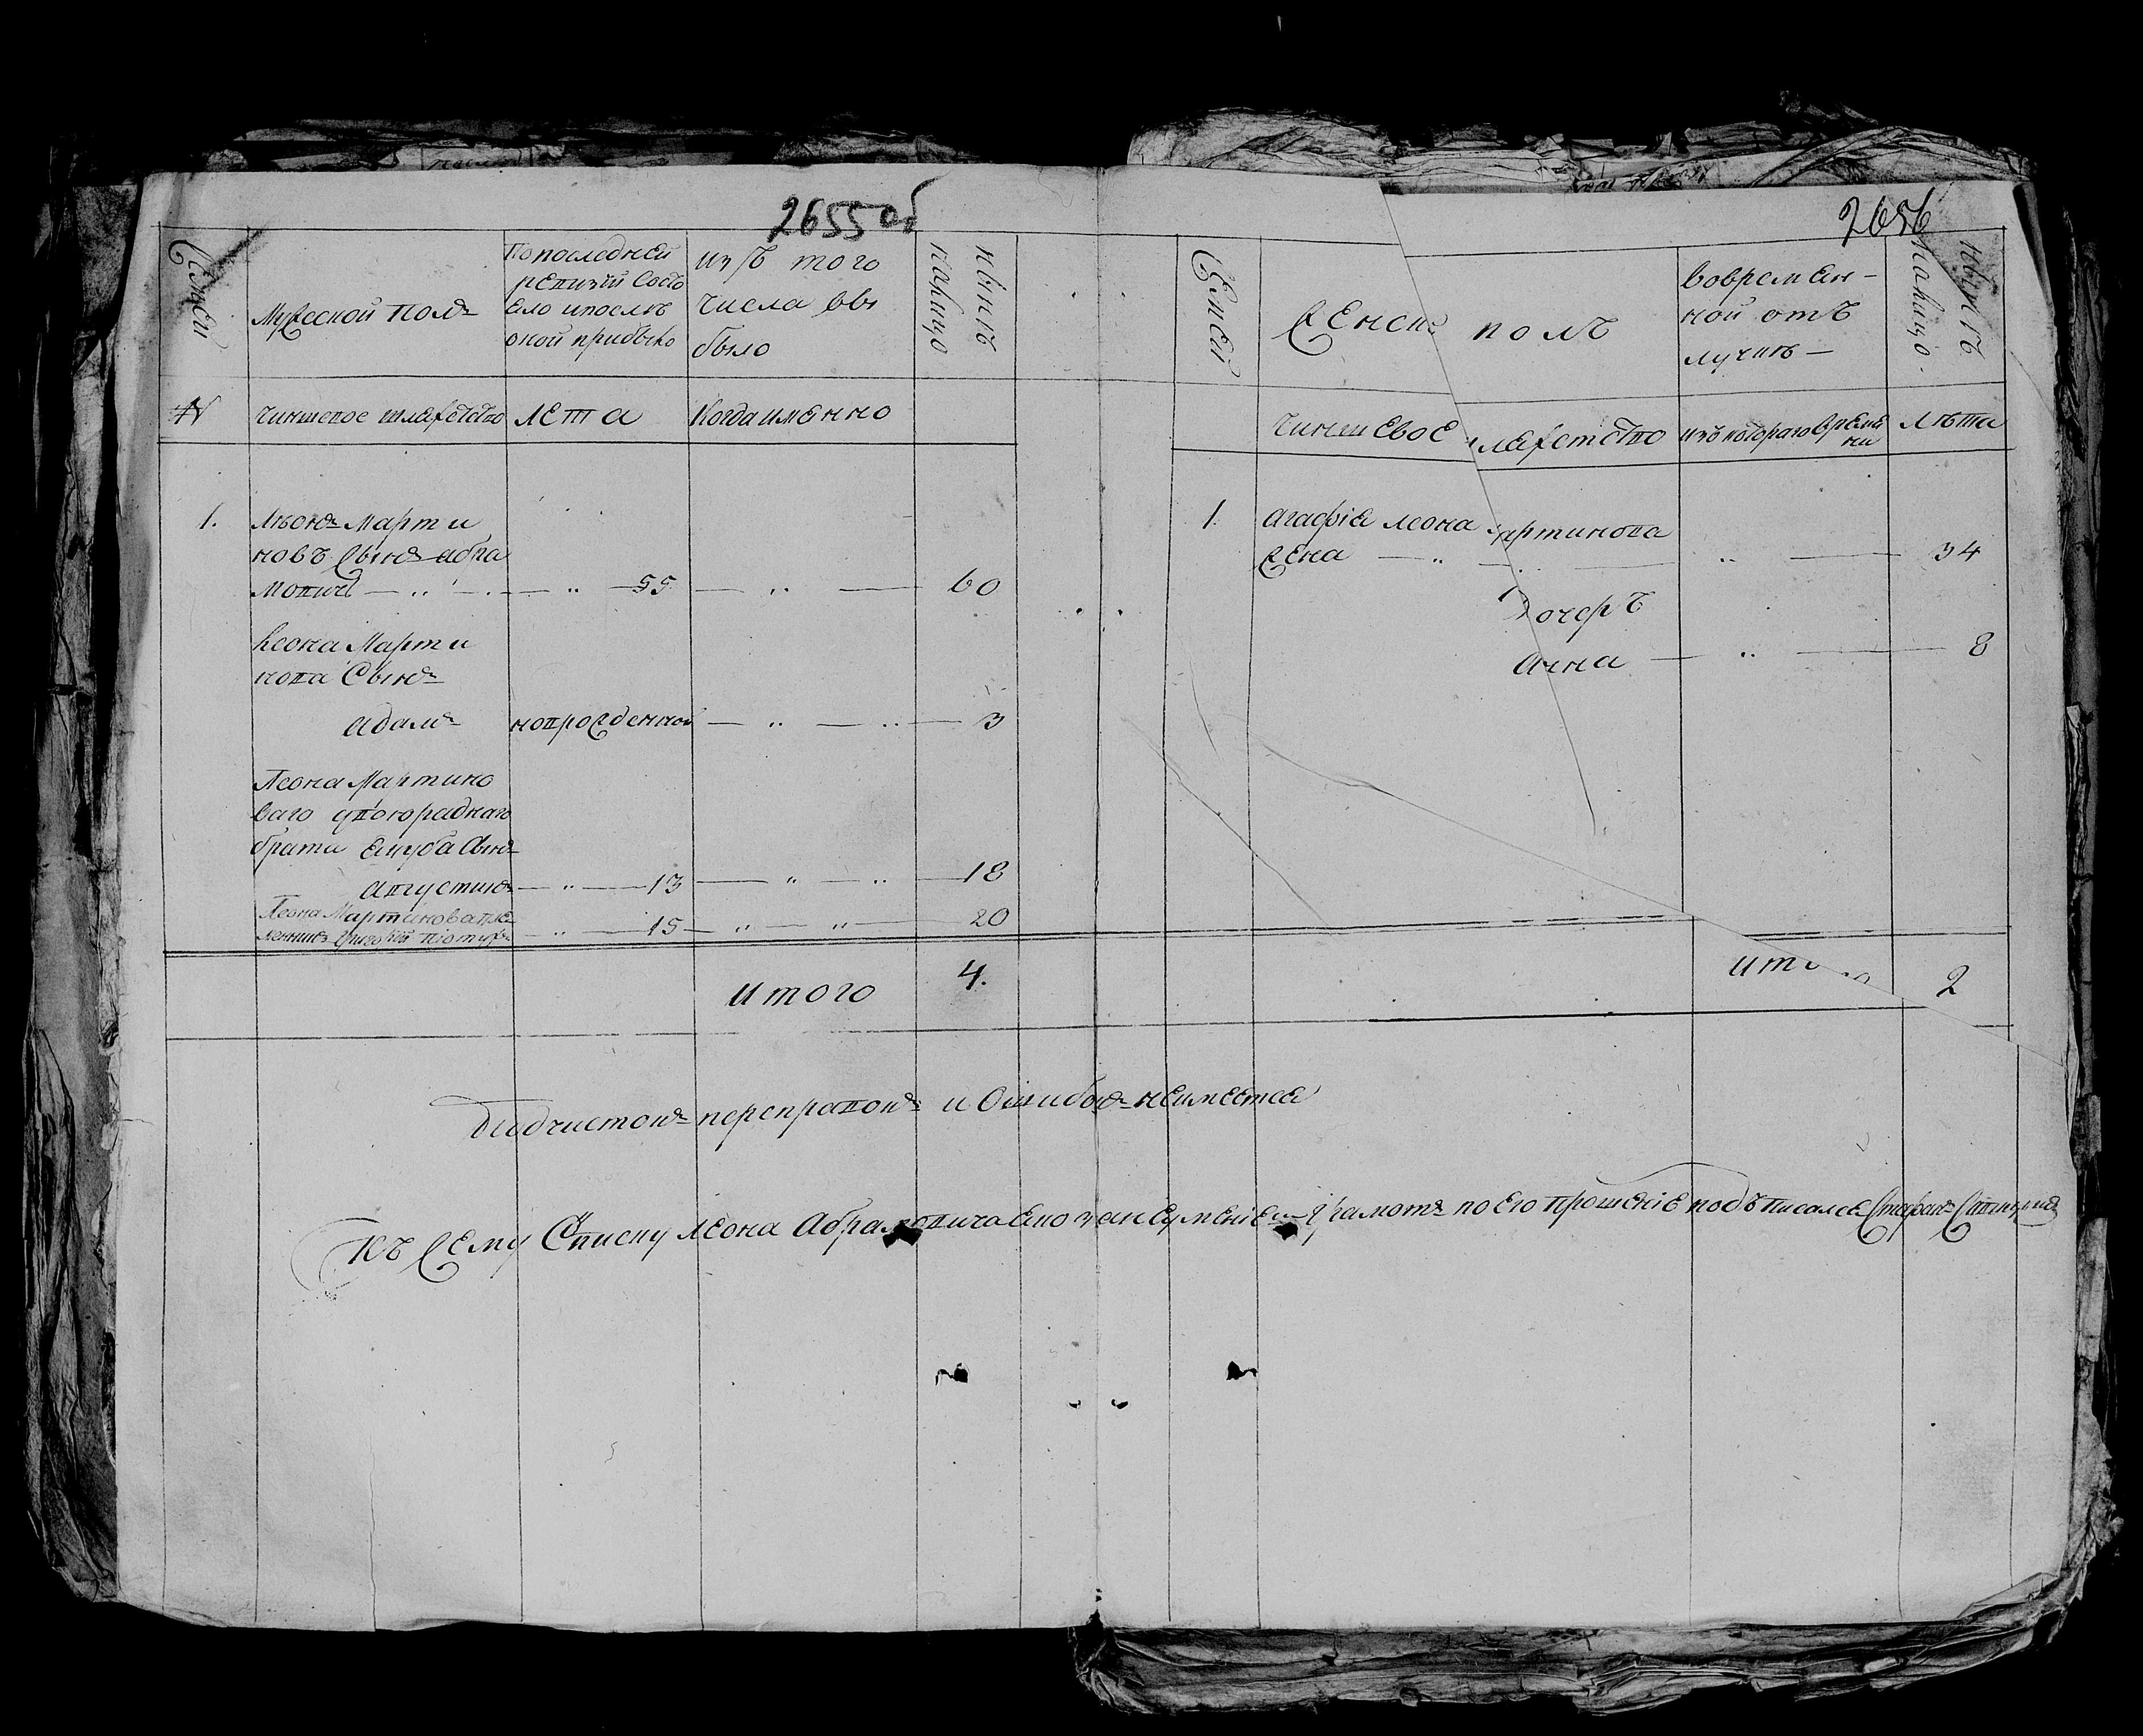 2655 об
2656
Семей
Мужеской полъ
По последней
ревизiй Состо
Ело ипослѣ
оной прибыло
изъ того
числа вы
было
нынѣ
налицо
№
чиншевое шляхетство
Лета
Когда именно
1.
Лѣонъ Марти
новъ Сынъ абра
мовичъ — „ — 55 — „ — 60
Леона Марти
нова Сынъ
адамъ новрожденной — „ — „ — 3
Леона Мартино
ваго двоюраднаго
брата Якуба Сынъ
августинъ — „ — 13 — „ — „ — 18
Леона Мартинова пле
— „ — 15 — „ — „ — 20
итого 4.
Семей
Женск полъ
вовремен-
ной отъ
лучкѣ —
нынѣ
налицо.
чиншевое ляхетство
изъ котораго время
ни
Лѣта
1. агафiя леона артинова
жена — „ — „ — 34
Дочерь
Анна — „ — 8
ито о 2
Подчистокъ переправокъ и Ошибокъ неиместся
Къ Сему Списку Леона Абрамовича Грамотѣ по Его Прошенiе подъписался Стефанъ